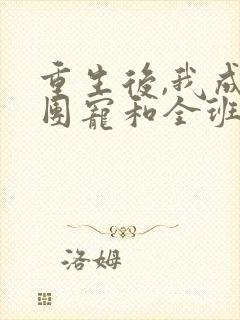 重生後,我成
團寵和全班
洛姆